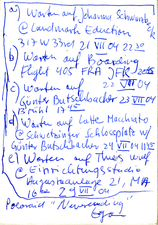 a) Warten auf Johannes Schwanke
@ Landmark Eduction
317 W 33rd 21 VII 04 22 30
b) Warten auf Boarding
Flight 405 FRA JFK
22 VII 04
c) Warten auf
Günter Butschbacher 23 VII 04
17 45
d) Warten auf Latte Macchiato
@ Schwetzinger Schlossplatz w/
Günter Butschbacher 24 VII 04
e) Warten auf
@ Einrichtungsstudio
Augustaanlage 21, MA
VII 04
Polaroid